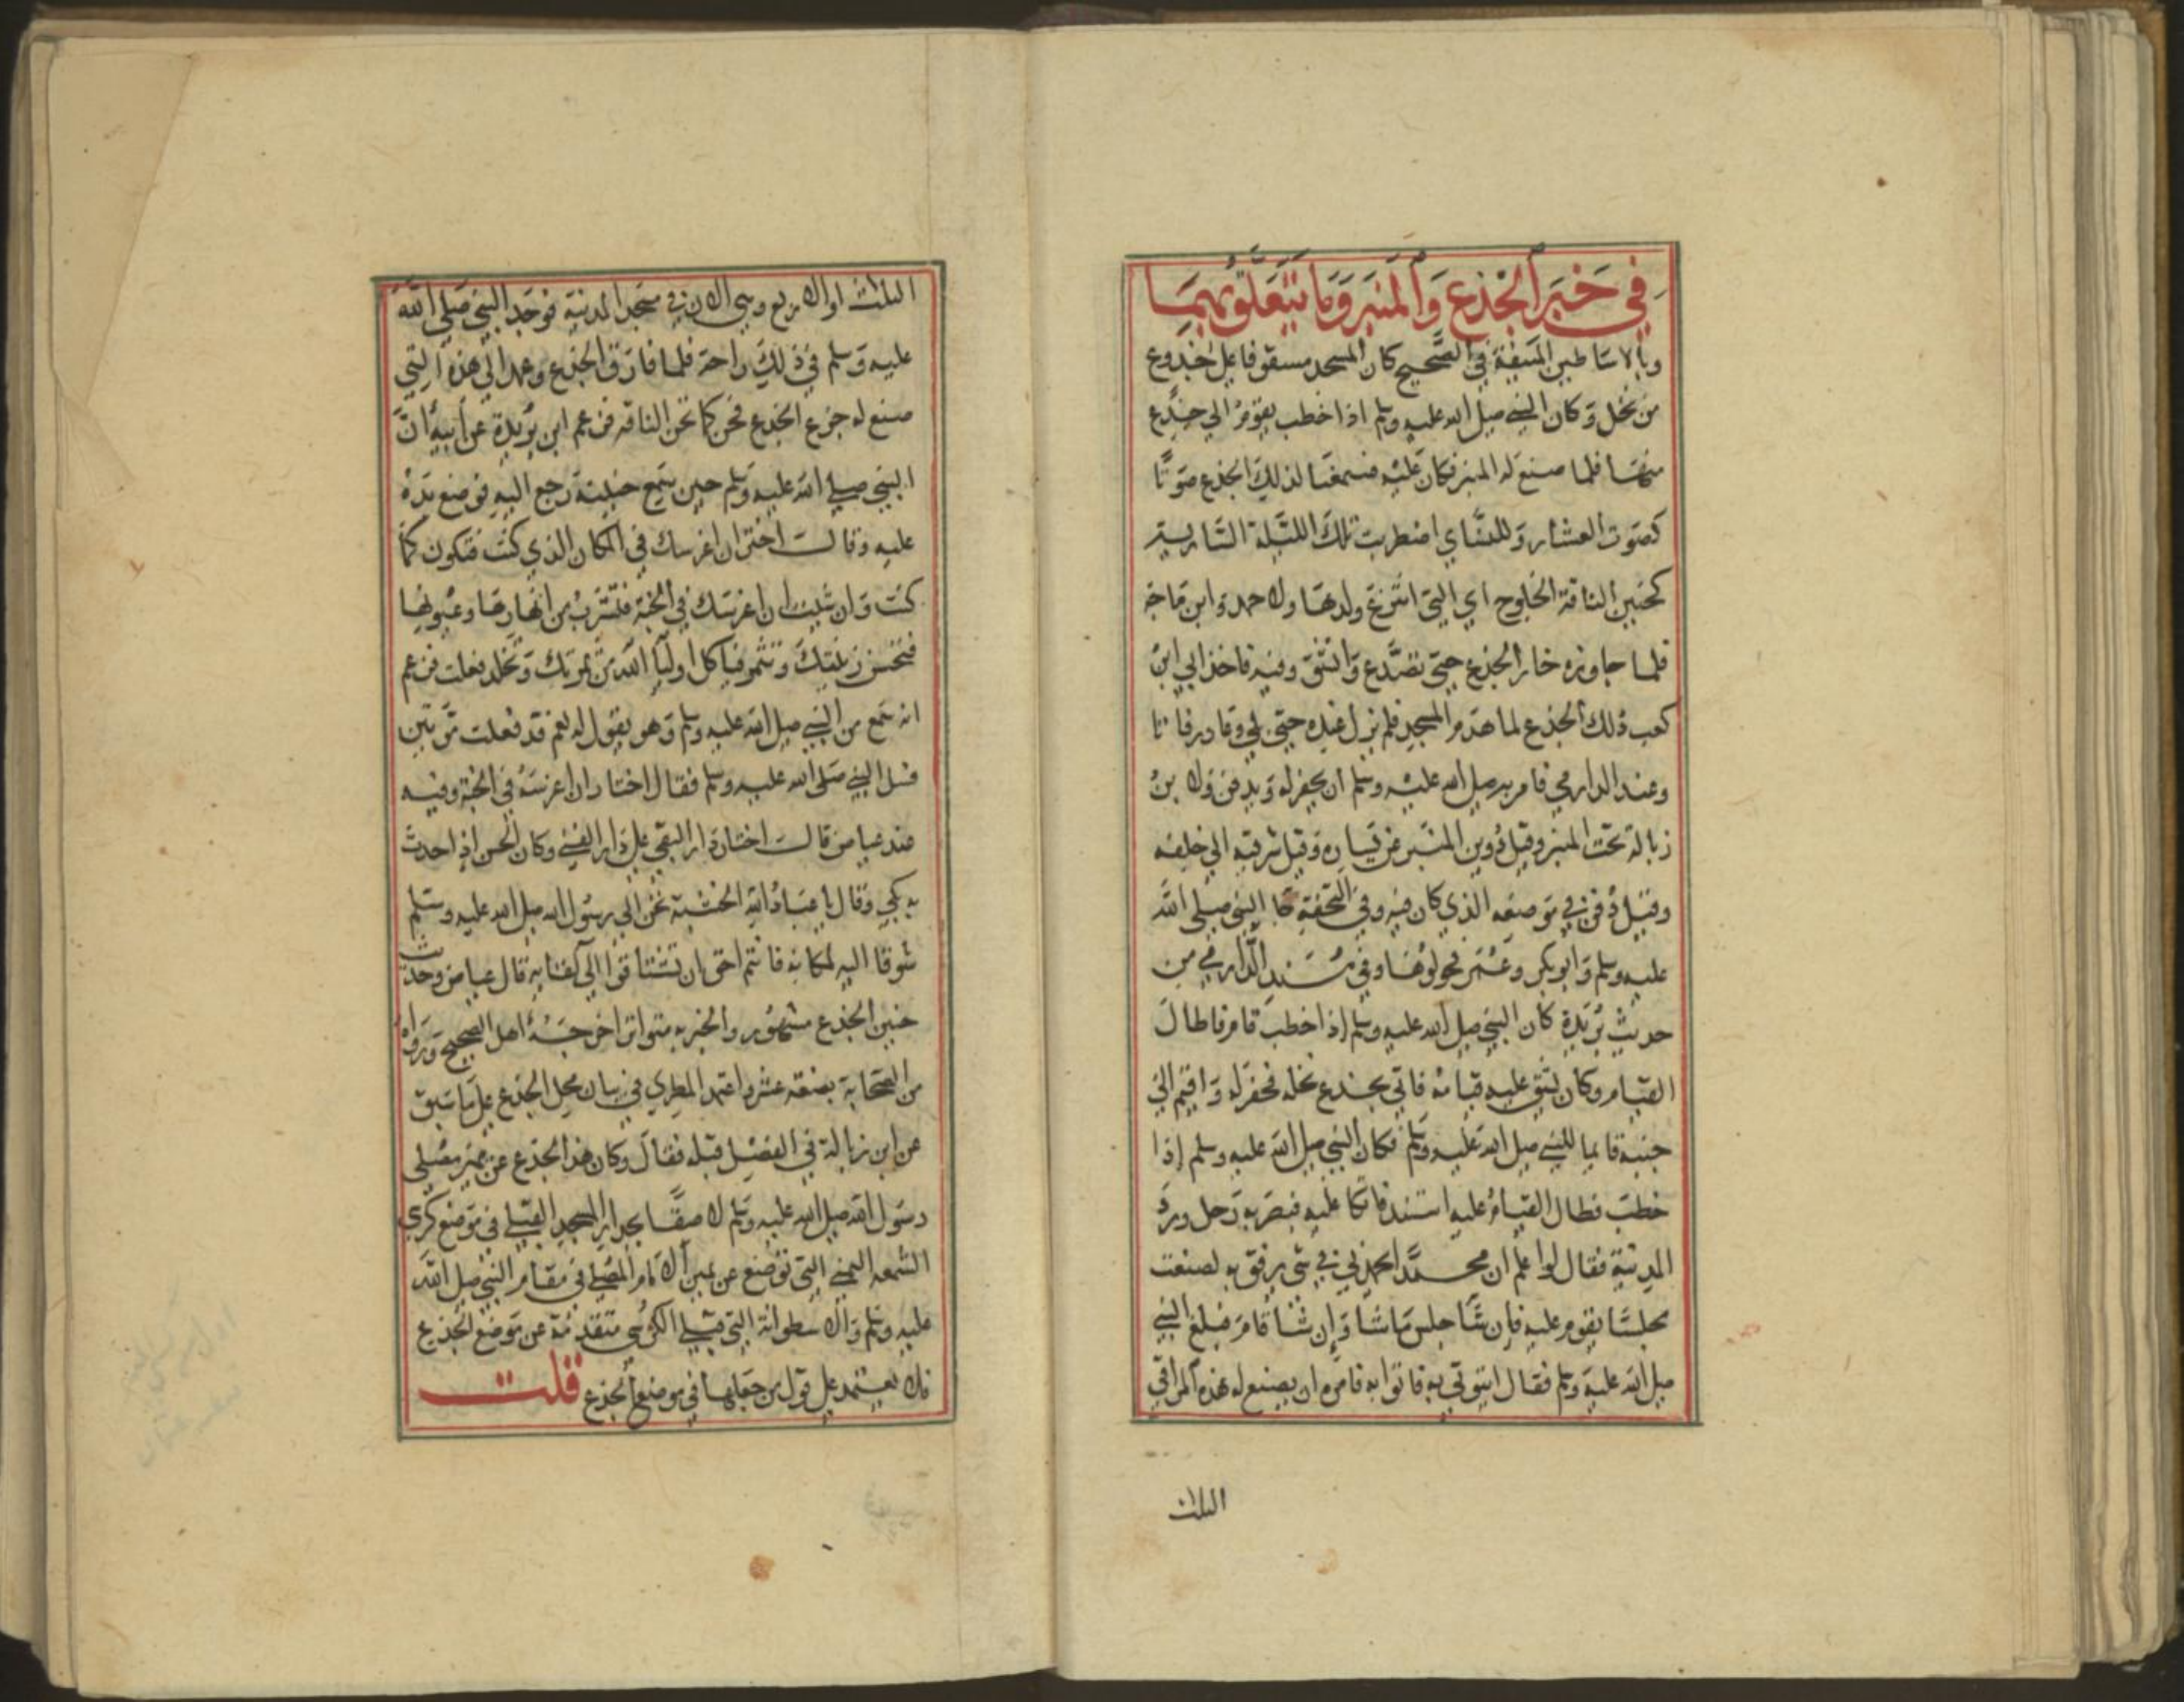 في خبر الجذع والمنبر وما يتعلق بهما
وبالاساطين المنيفة في الصحيح كان المسجد مسقوفا على جذوع
من نخل وكان النبي صلى الله عليه وسلم اذا خطب يقوم الى جذع
منها فلما صنع له المنبر فكان عليه فسمعنا لذلك الجذع صوتا
كصوت العشار وللنساي اضطربت تلك السارية
كحنين الناقة الخلوج اي التي انتزع ولدها ولاحمد وابن ماجه
فلما جاوزه خار الجذع حتى تصدع وانشق وفيه فاخذ ابي ابن
كعب ذلك الجذع لما هدم المسجد فلم يزل عنده حتى بلي وعاد رفاتا
وعند الدارمي فامر به صلى الله عليه وسلم ان يحفر له ويدفن ولابن
زبالة تحت المنبر وقيل دوين المنبر عن يساره وقيل شرقيه الى خلفه
وقيل دفن في موضعه الذي كان فيه وفي التحفة جا النبي صلى الله
عليه وسلم وابو بكر وعمر فحولوها وفي مسند الدارمي من
حديث بريدة كان النبي صلى الله عليه وسلم اذا خطب قام فاطال
القيام وكان يشق عليه قيامه فاتي بجذع نخله فحفر له واقيم الى
جنبه قايما للنبي صلى الله عليه وسلم فكان النبي صلى الله عليه وسلم اذا
خطب فطال القيام عليه استند فاتكا عليه فبصر به رجل ورد
المدينة فقال لو اعلم ان محمدا يحمدني في شي يرفق به لصنعت
مجلسا يقوم عليه فان شا جلس ما شا وان شا قام فبلغ النبي
صلى الله عليه وسلم فقال ايتوني به فاتوا به فامره ان يصنع له هذه المراقي
الثلاث
الثلاث او الاربع وهي الان في مسجد المدينة فوجد النبي صلى الله
عليه وسلم في ذلك راحة فلما فارق الجذع وعمد الى هذه التي
صنع له جزع الجذع فحن كما تحن الناقه فزعم ابن بريدة عن ابيه ان
النبي صلى الله عليه وسلم حين سمع حنينه رجع اليه فوضع يده
عليه وقال اختر ان اغرسك في المكان الذي كنت فتكون كما
كنت وان شيت ان اغرسك في الجنة فتشرب من انهارها وعيونها
فتحسن نبتتك وتثمر فياكل اوليا الله من ثمرتك وتخلد فعلت فزعم
انه سمع من النبي صلى الله عليه وسلم وهو يقول له نعم قد فعلت مرتين
فسل النبي صلى الله عليه وسلم فقال اختار ان اغرسه في الجنة وفيه
عند عياض قال اختار دار البقى على دار الفنى وكان الحسن اذا حدث
به بكى وقال يا عباد الله الخشبة تحن الى رسول الله صلى الله عليه وسلم
شوقا اليه لمكانه فانتم احق ان تشتاقوا الى لقايه قال عياض وحديث
حنين الجذع مشهور والخبر به متواتر اخرجه اهل الصحيح ورواه
من الصحابة بضعة عشر واعتمد المطري في بيان محل الجذع على ما سبق
عن ابن زبالة في الفصل قبله فقال وكان هذا الجذع عن يمين مصلى
رسول الله صلى الله عليه وسلم لاصقا بجدار المسجد القبلي في موضع كرسي
الشمعه اليمنى التي توضع عن يمين الامام المصلي في مقام النبي صلى الله
عليه وسلم والاسطوانة التي قبلي الكرسي متقدمة عن موضع الجذع
فلا يعتمد على قول من جعلها في موضع الجذع قلت